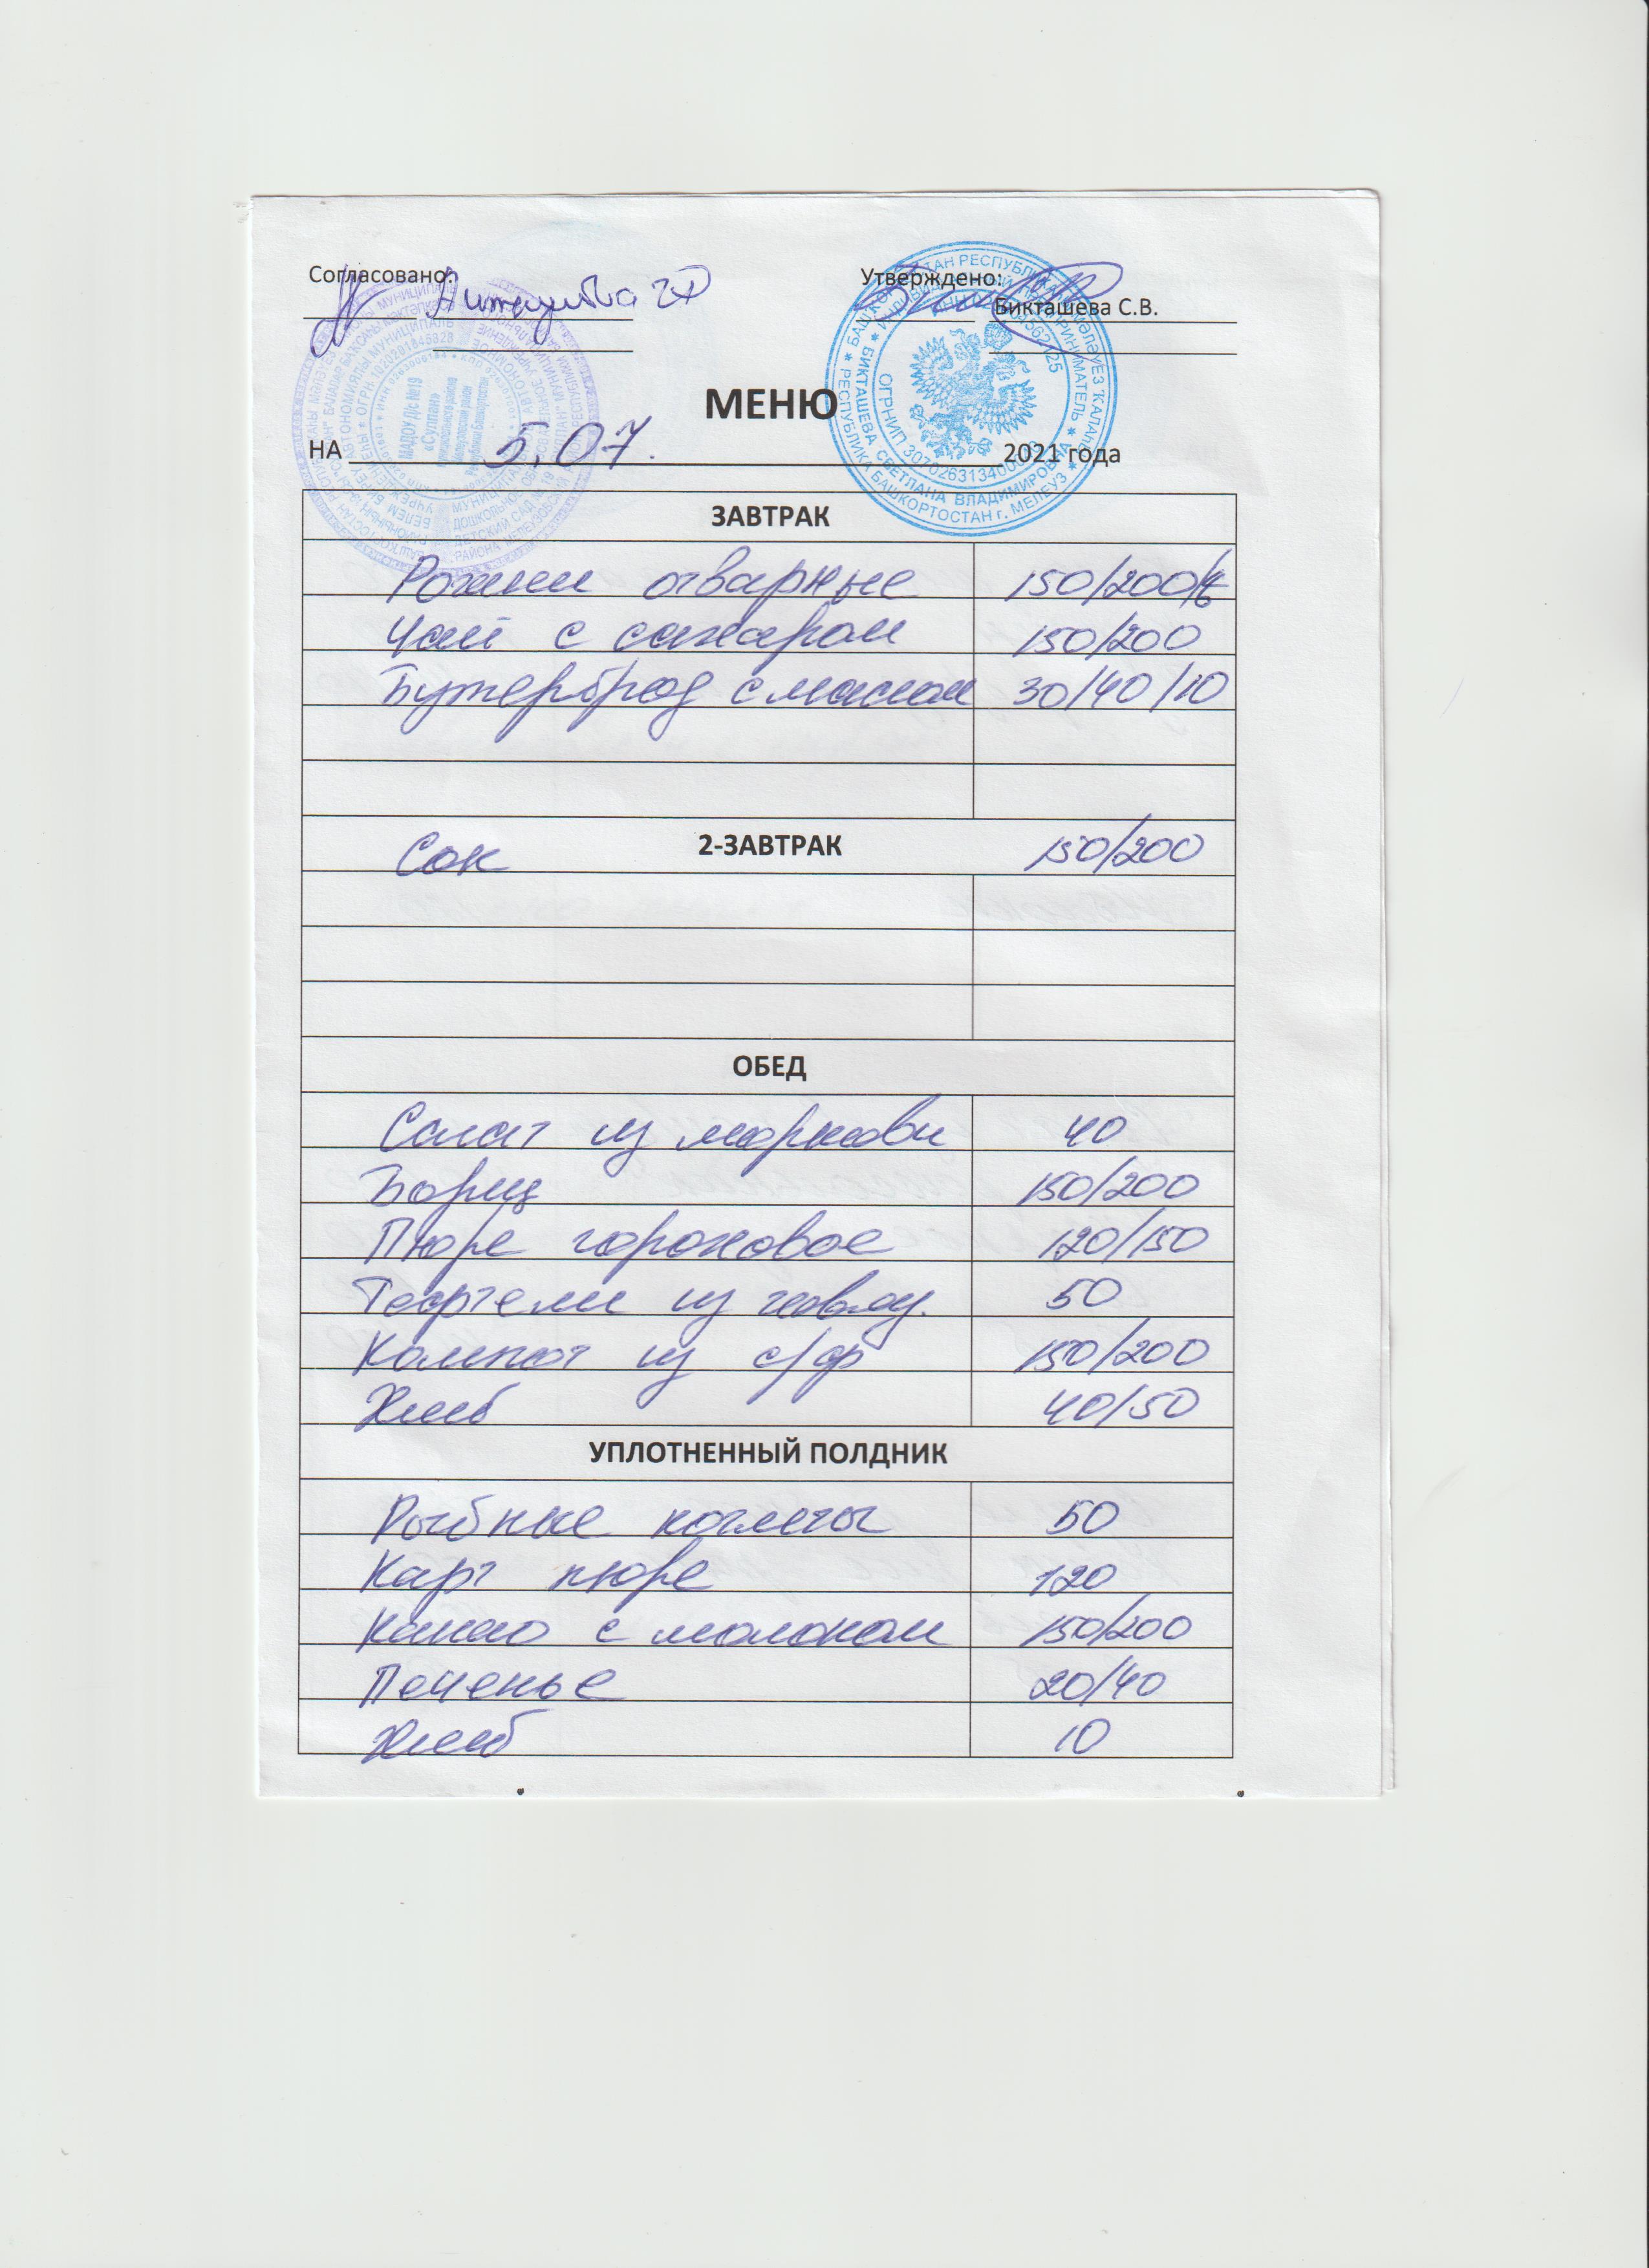 Согласовано:
Утверждено:
Бикташева С.В.
МЕНЮ
НА 5.07. 2021 года
МАДОУ Д/с №19
«Султан»
ЗАВТРАК
Рожки отварные 150/200/6
Чай с сахаром 150/200
Бутерброд с маслом 30/40/10
Сок 2-ЗАВТРАК 150/200
ОБЕД
Салат из моркови 40
Борщ 150/200
Пюре гороховое 120/150
Тефтели из говяд. 50
Компот из с/ф 150/200
Хлеб 40/50
УПЛОТНЕННЫЙ ПОЛДНИК
Рыбные котлеты 50
Карт пюре 120
Какао с молоком 150/200
Печенье 20/40
Хлеб 10